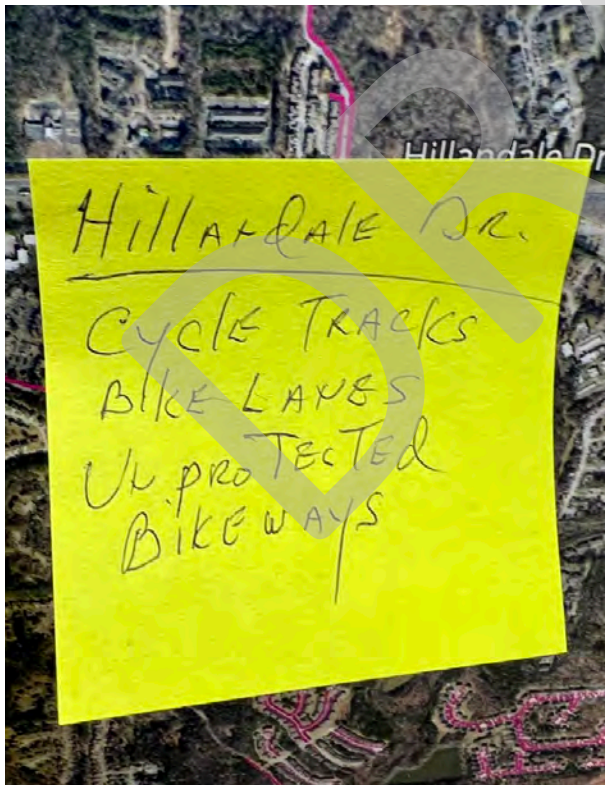 Hillandale Dr
Hillandale Dr.
Cycle Tracks
Bike Lanes
Unprotected
Bikeways